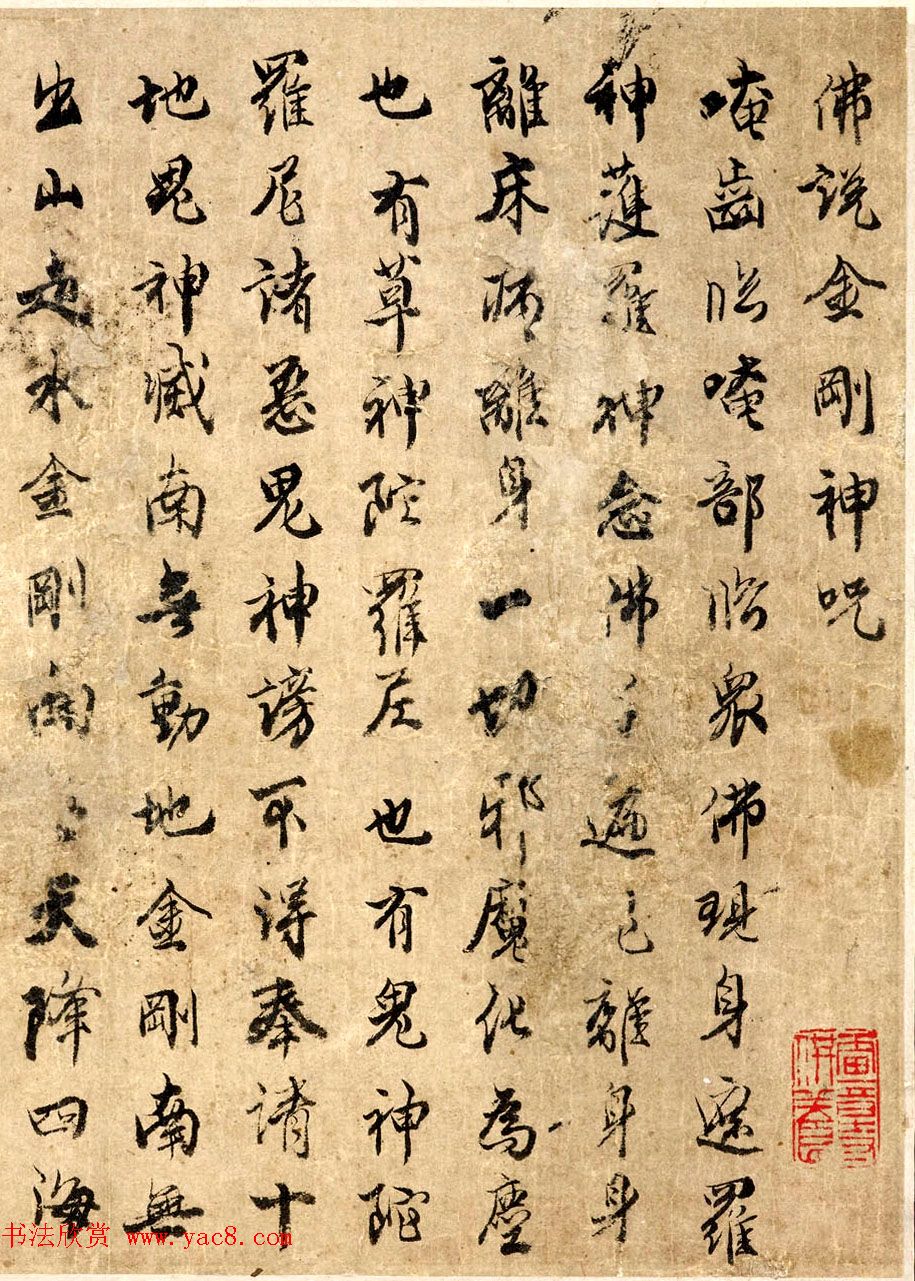 佛說金剛神咒
唵齒臨唵部臨眾佛現身遮羅
神護羅神念佛千遍已離身身
離床病離身一切邪魔化為塵
也有草神陀羅尼也有鬼神陀
羅尼諸惡鬼神謗不得奉請十
地鬼神滅南無動地金剛南無
出山走水金剛南天降四海
书法欣赏 www.yac8.com